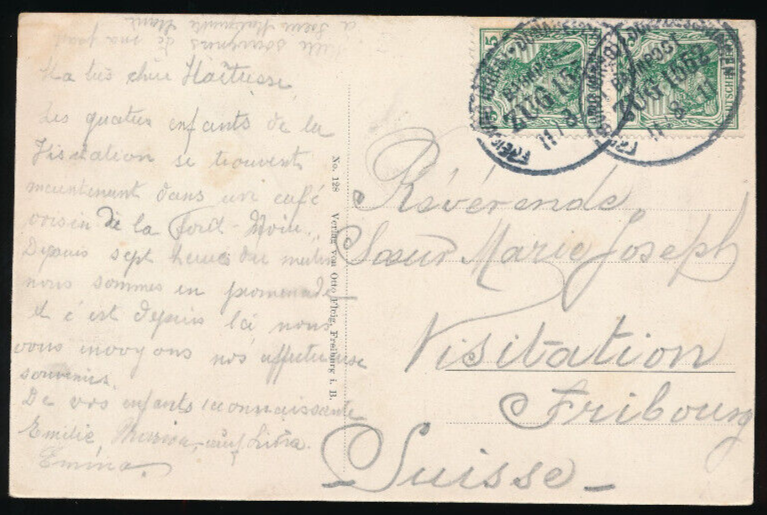 Mille souvenirs de ma part
a Sœur Marguerite Marie
Ma très chère Maîtresse,
Les quatre enfants de la
Visitation se trouvent
maintenant dans un café
voisin de la Forêt-Noire.
Depuis sept heures du matin
nous sommes en promenade
et c'est depuis là nous
vous envoyons nos affectueux
souvenirs.
De vos enfants reconnaissante
Emilie,
Emina.
No. 128 Verlag von Otto Freiburg i. B.
5
BAHNPOST
ZUG 1568
11 8 11
BAHNPOST
ZUG 15
11 8
Révérende
Sœur Marie Joseph
Visitation
Fribourg
Suisse